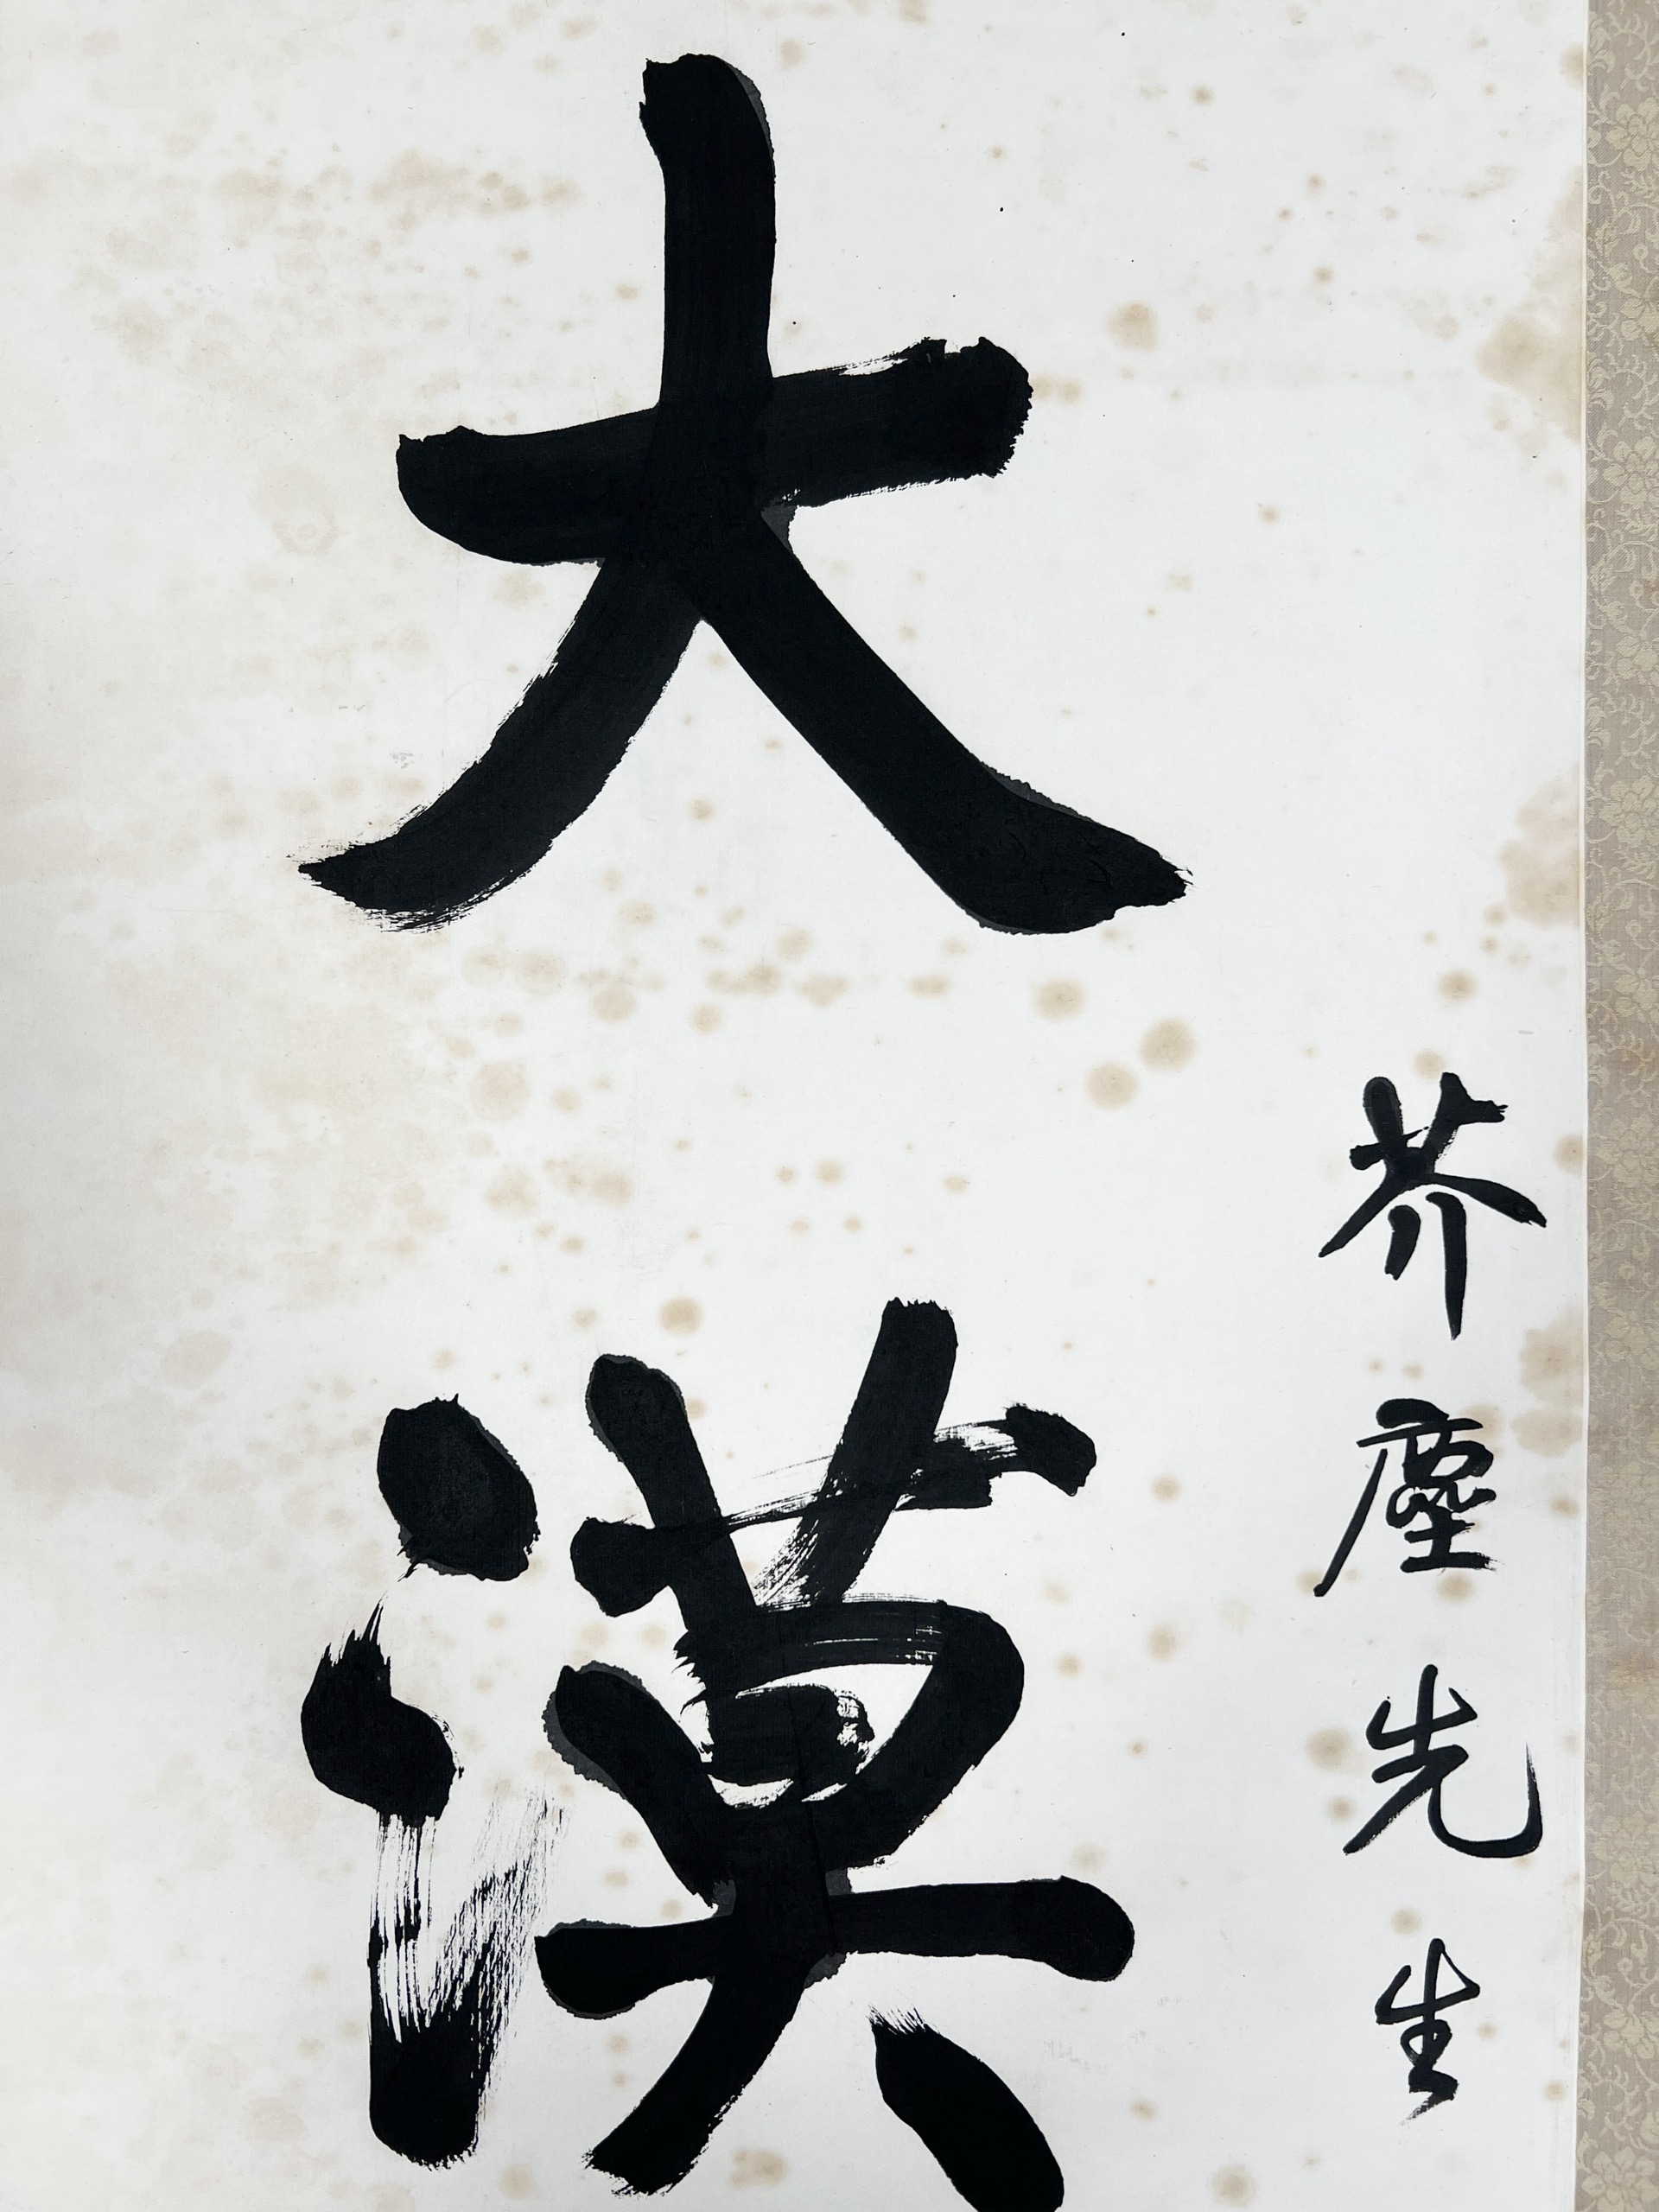 芥塵先生
大漠